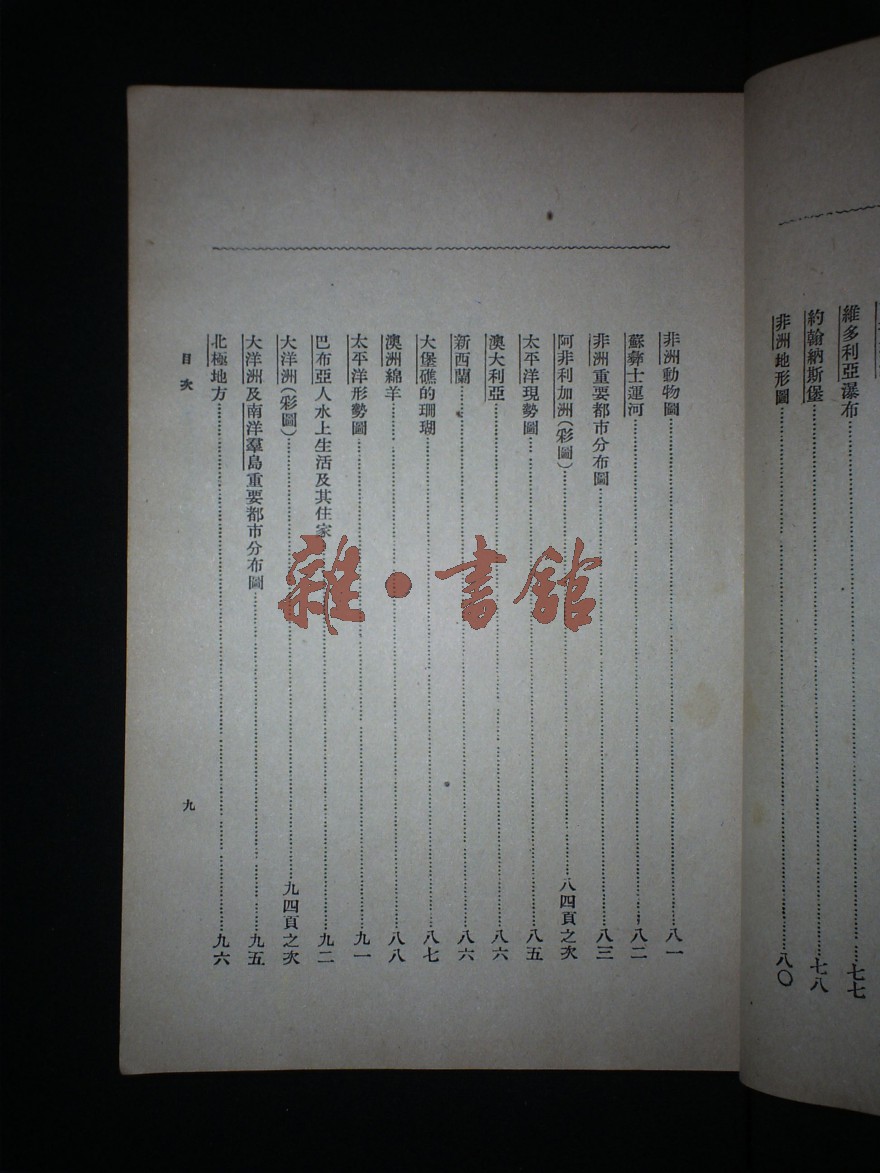 維多利亞瀑布……七七
約翰納斯堡……七八
非洲地形圖……八〇
非洲動物圖……八一
蘇彝士運河……八二
非洲重要都市分布圖……八三
阿非利加洲(彩圖)……八四頁之次
太平洋現勢圖……八五
澳大利亞……八六
新西蘭……八六
大堡礁的珊瑚……八七
澳洲綿羊……八八
太平洋形勢圖……九一
巴布亞人水上生活及其住家……九二
大洋洲(彩圖)……九四頁之次
大洋洲及南洋羣島重要都市分布圖……九五
北極地方……九六
目次
九
雜·書館